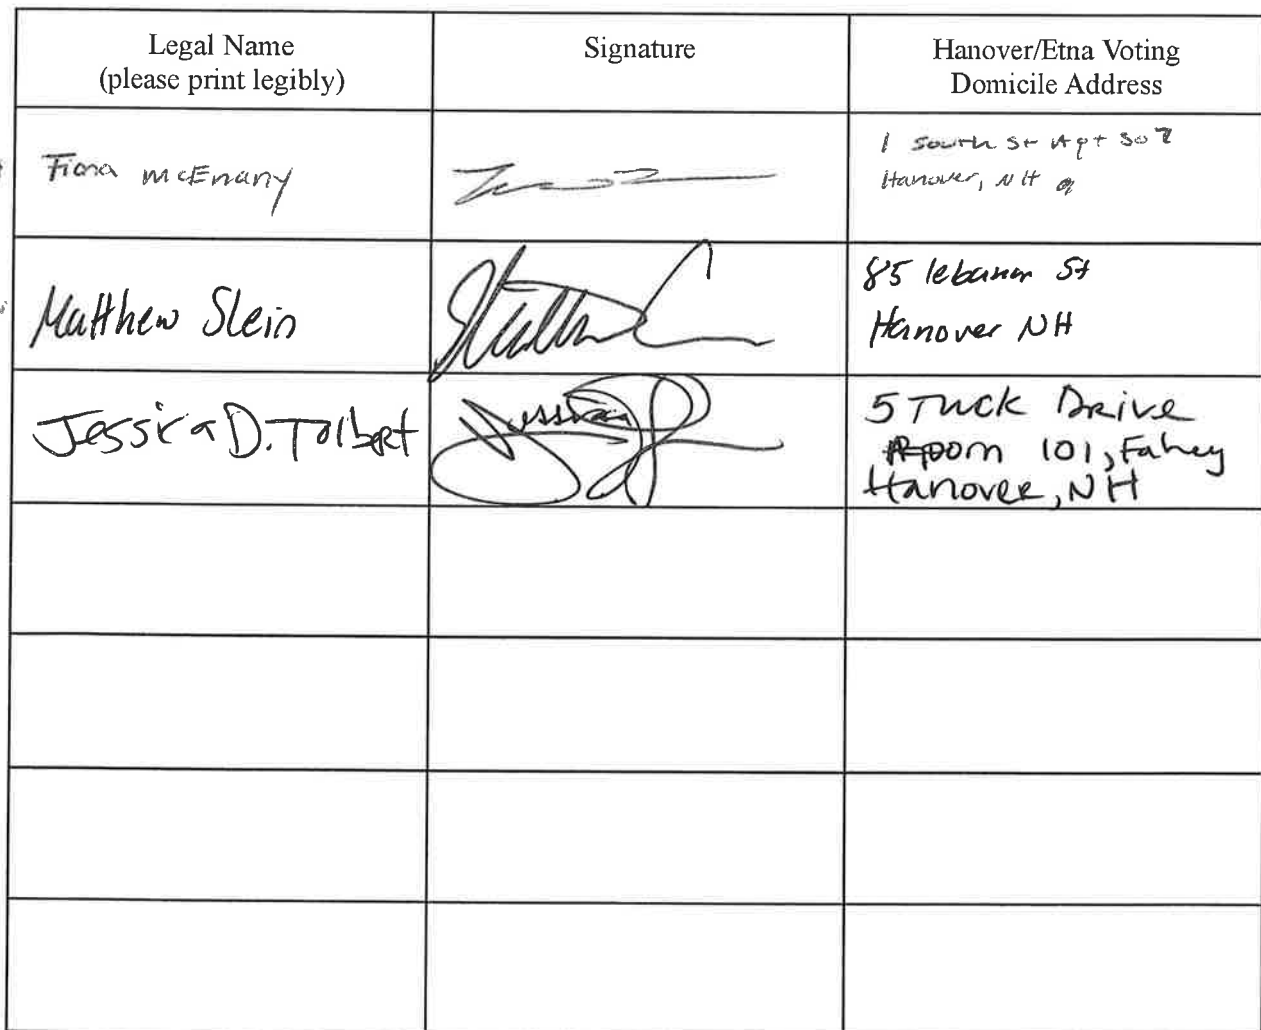 Legal Name
(please print legibly)
Signature
Hanover/Etna Voting
Domicile Address
Fiona McEnany
1 South St Apt 307
Hanover, NH
Matthew Slein
85 lebanon St
Hanover NH
Jessica D. Tolbert
Jessica
5 Tuck Drive
Room 101, Fahey
Hanover, NH